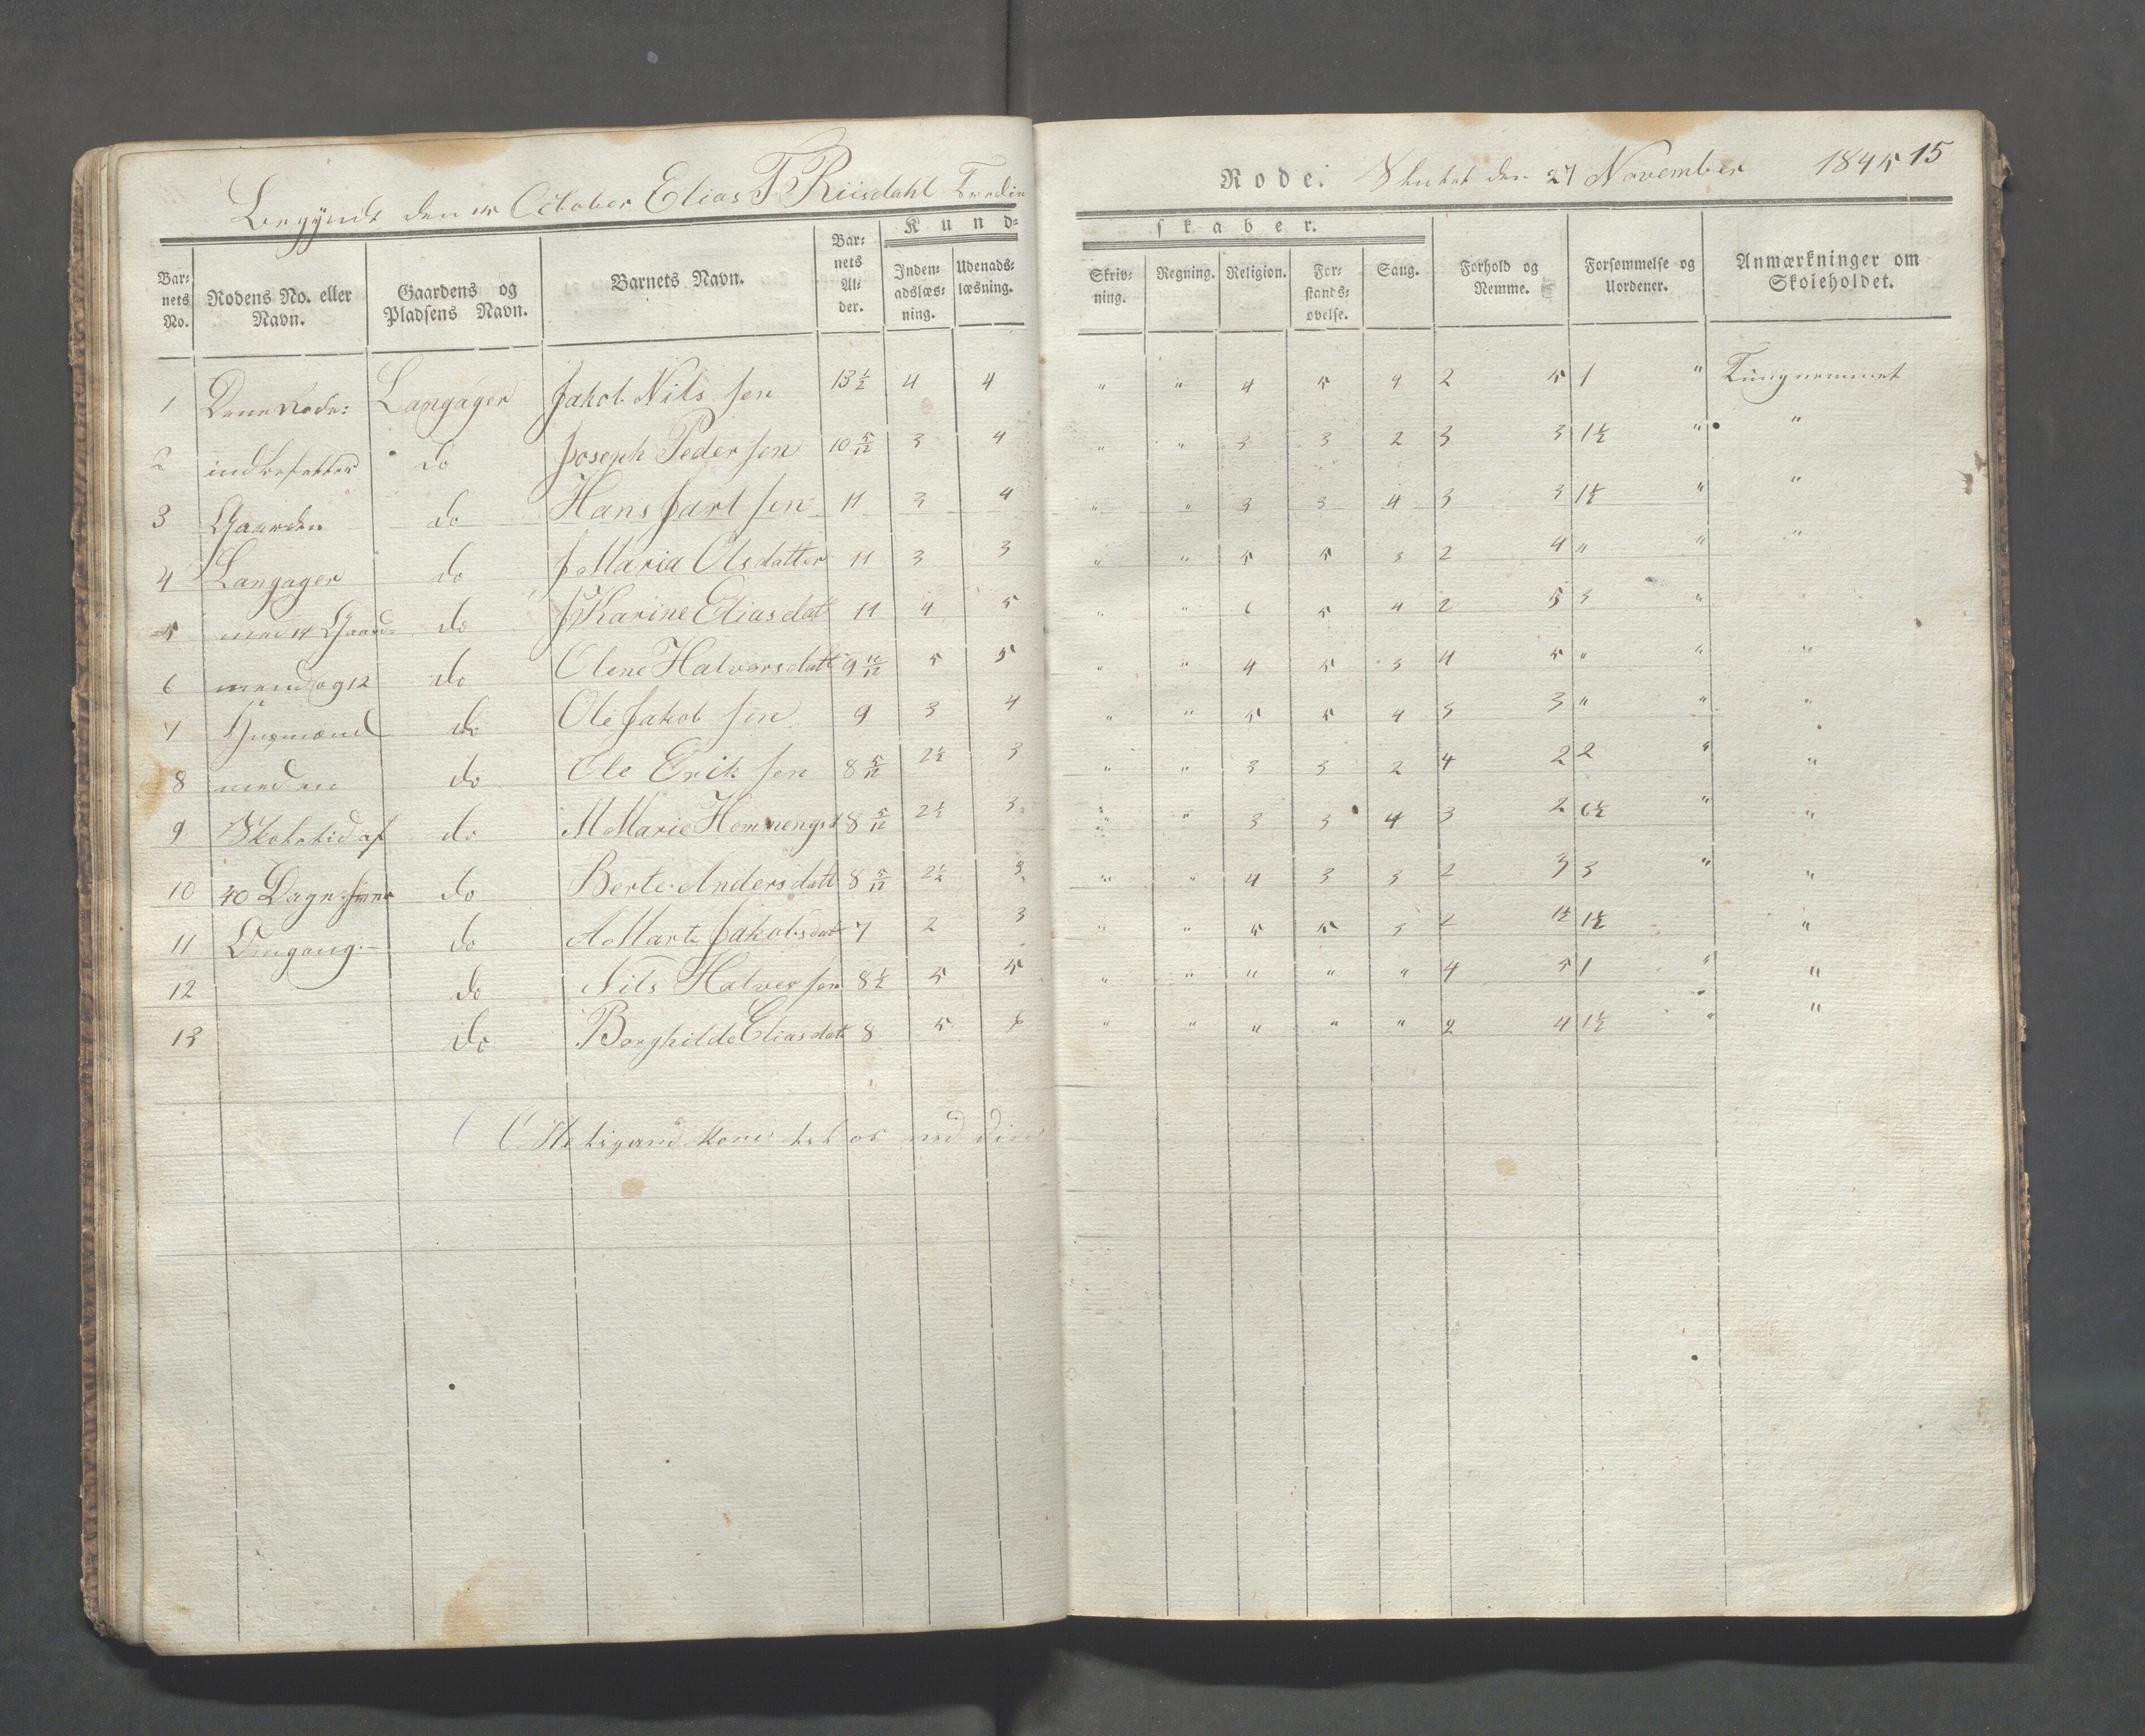 Begyndt den October Elias T Riisdahl Tredie Rode. Slutet den 27 November 1845 15
Kundskaber.
Barnets No. Rodens No. eller Navn. Gaardens og Pladsens Navn. Barnets Navn. Barnets Alder. Indenadslæsning. Udenadslæsning. Skrivning. Regning. Religion. Forstandsøvelse. Sang. Forhold og Nemme. Forsømmelse og Uordener. Anmærkninger om Skoleholdet.
1 Dene Rode: Langager Jakob Nils sen 13½ 4 4 " " 4 5 4 2 5 1 " Tungnemmet
2 indbefatter do Joseph Peder sen 10 5/12 3 4 " " 3 3 2 3 3 1½ " "
3 Gaarden do Hans Jarl sen 11 3 4 " " 3 3 4 3 3 1½ " "
4 Langager do J Maria Olsdatter 11 3 3 " " 5 5 3 2 4 " " "
5 med 14 Gaard= do J Karine Eliasdat 11 4 5 " " 6 5 4 2 5 3 "
6 mend og 12 do Olene Halvorsdatt 9 5 5 " " 4 5 3 4 5 " " "
7 Husmænd do Ole Jakob sen 9 3 4 " " 5 5 4 3 3 " " "
8 med en do Ole Erik sen 8 5/12 2½ 3 " " 3 3 2 4 2 2 " "
9 Skoletid af do M Marie Hemmengsd 8 5/12 2½ 3 " " 3 3 4 3 2 6½ " "
10 40 Dage do Berte Andersdatt 8 5/12 2½ 3 " " 4 3 3 2 3 3 " "
11 Omgang.- do A Marte Jakobsdat 7 2 3 " " 5 5 3 2 1½ 1½ "
12 do Nils Halver sen 8½ 5 5 " " " " " 4 5 1 " "
13 do Borghilde Eliasdat 8 5 6 " " " " " 2 4 1½ " "
kom